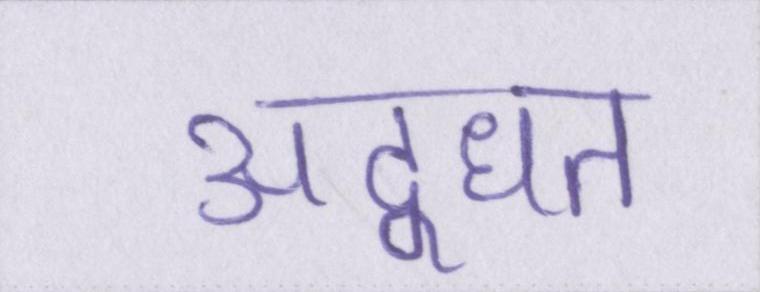 अद्वधत